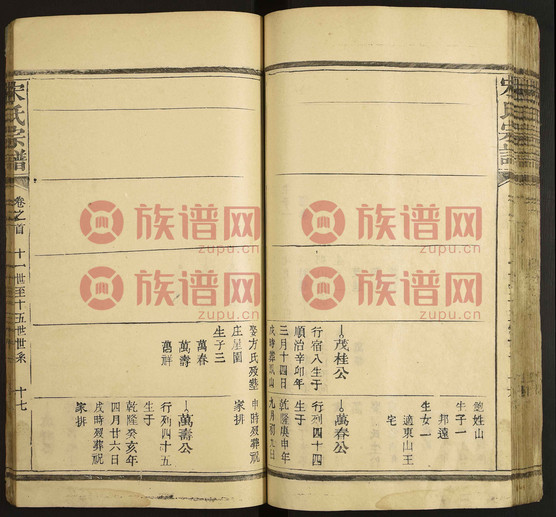 宋氏宗譜
鮑姓山
生子一
邦遠
生女一
適東山王
宅
茂桂公
行宿八生于
順治辛卯年
三月十四日
萬春公
行列四十四
生于
乾隆庚申年
九月初九日
申時歿葬祝
家拼
娶方氏歿塟
庄呈園
生子三
萬春
萬壽
萬壽公
行列四十五
生于
乾隆癸亥年
四月廿六日
戌時歿葬祝
家拼
宋氏宗譜
卷之首
十一世至十五世世系
十七
族谱网
zupu.cn
族谱网
zupu.cn
族谱网
zupu.cn
族谱网
zupu.cn